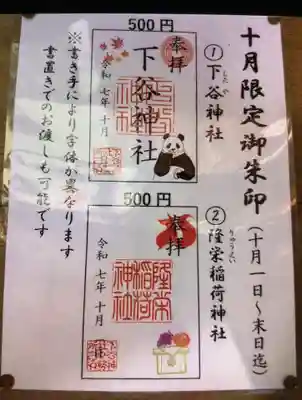 十月限定御朱印(十月一日〜末日迄)
①下谷神社
したや
②隆栄稲荷神社
りゅうえい
500円
奉拝
下谷神社
令和七年十月
500円
奉拝
隆栄
稲荷
神社
令和七年十月
※書き手により字体が異なります
書置きでのお渡しも可能です